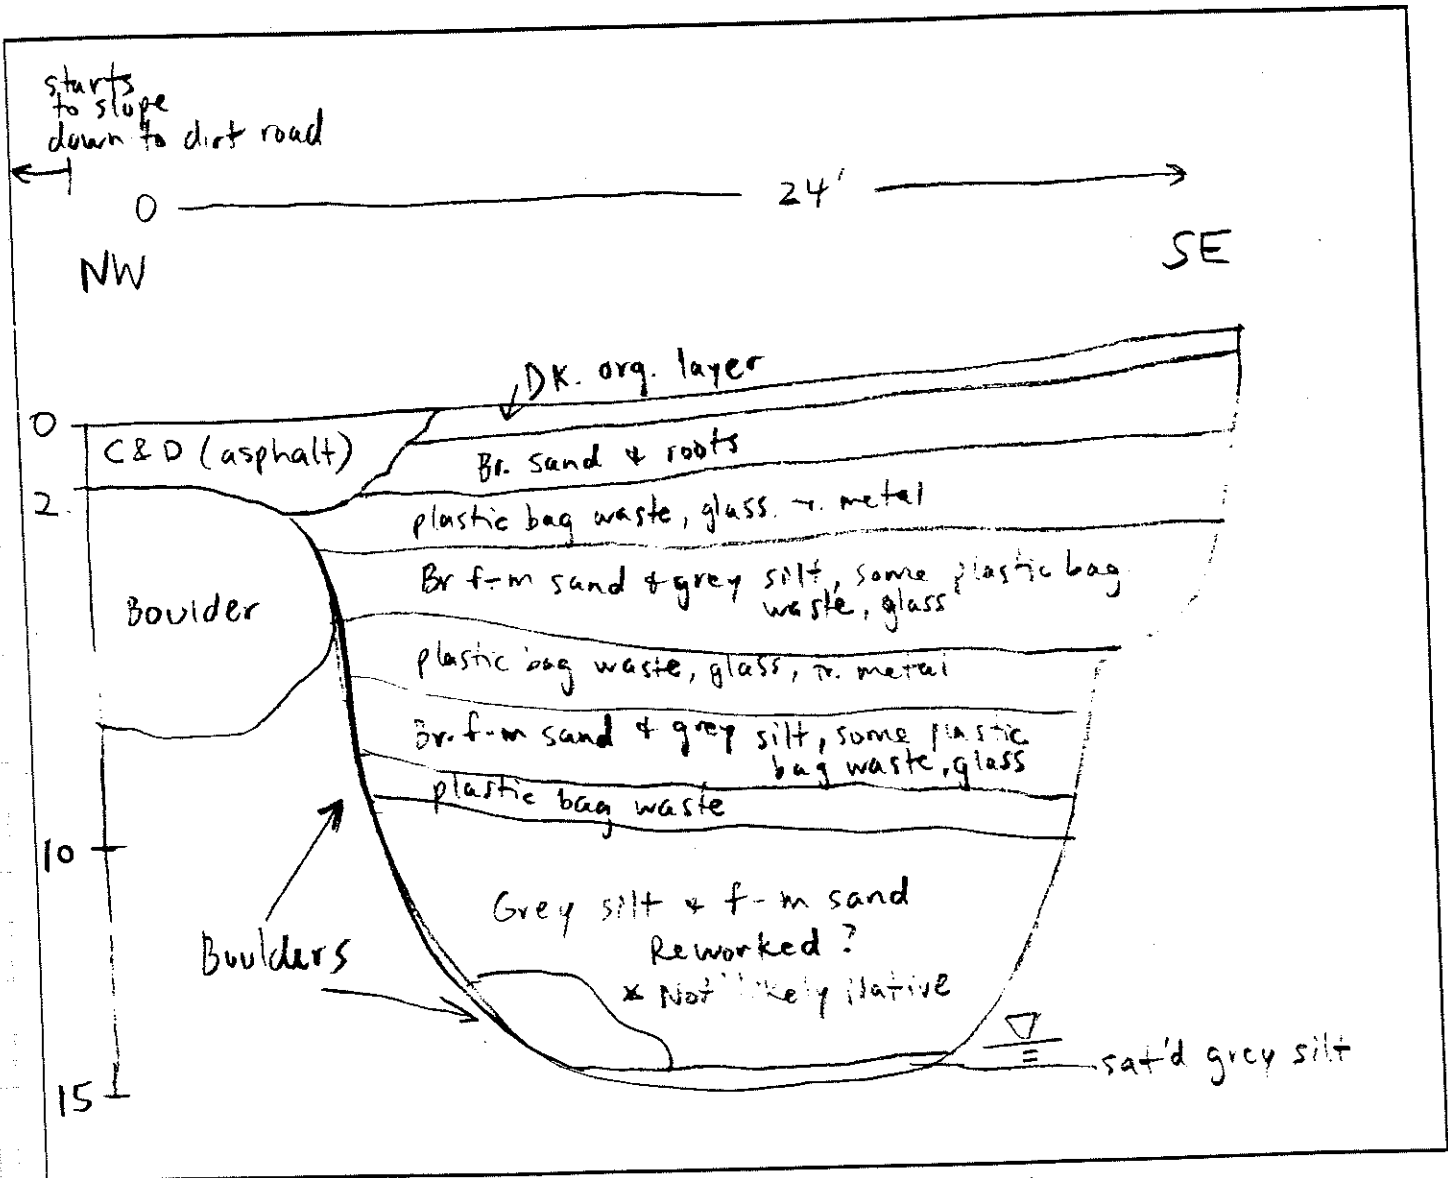 starts
to slope
down to dirt road
0 24'
NW SE
DK. org. layer
0
C & D (asphalt)
Br. sand & roots
2
plastic bag waste, glass, tr. metal
Br f-m sand & grey silt, some plastic bag
waste, glass
Boulder
plastic bag waste, glass, tr. metal
Br. f-m sand & grey silt, some plastic
bag waste, glass
plastic bag waste
10
Grey silt & f-m sand
Reworked?
* Not likely Native
Boulders
sat'd grey silt
15